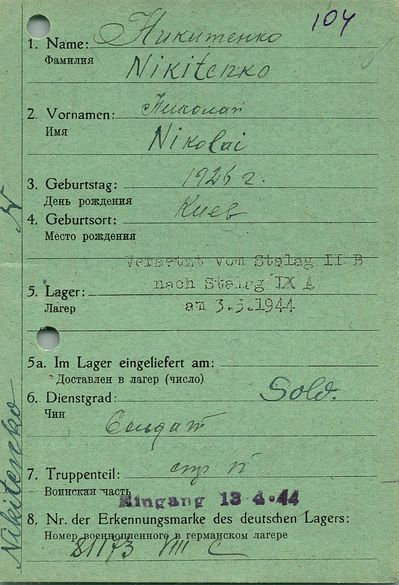 104
1. Name: Никитенко
Фамилия
Nikitenko
2. Vornamen: Николай
Имя
Nikolai
3. Geburtstag: 1926 г.
День рождения
4. Geburtsort: Киев
Место рождения
Versetzt vom Stalag II B
nach Stalag IX A
5. Lager: am 3.3.1944
Лагер
5a. Im Lager eingeliefert am:
Доставлен в лагер (число)
6. Dienstgrad: Sold.
Чин
Солдат
7. Truppenteil:
Воинская часть
Eingang 13-4-44
8. Nr. der Erkennungsmarke des deutschen Lagers:
Номер военнопленного в германском лагере
81173 VIII C
N
Nikitenko